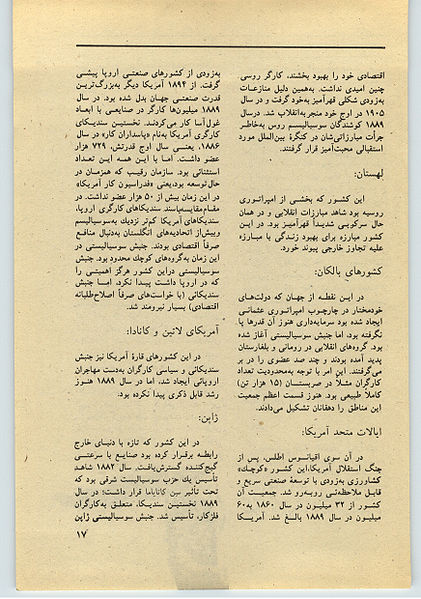 اقتصادی خود را بهبود بخشند، کارگر روسی
چنین امیدی نداشت. به‌همین دلیل منازعات
به‌زودی شکلی قهرآمیز به‌خود گرفت و در سال
۱۹۰۵ در اوج خود منجر به‌انقلاب شد. درسال
۱۸۸۹ کوشندگان سوسیالیسم روس به‌خاطر
جرأت مبارزاتی‌شان در کنگرهٔ بین‌الملل مورد
استقبالی محبت‌آمیز قرار گرفتند.
لهستان:
این کشور که بخشی از امپراتوری
روسیه بود شاهد مبارزات انقلابی و در همان
حال سرکوبی شدیداً قهرآمیز بود. در این
کشور مبارزه برای بهبود زندگی با مبارزه
علیه تجاوز خارجی پیوند خورد.
کشورهای بالکان:
در این نقطه از جهان که دولت‌های
خودمختار در چارچوب امپراتوری عثمانی
ایجاد شده بود سرمایه‌داری هنوز آن قدرها پا
نگرفته بود، اما جنبش سوسیالیستی آغاز شده
بود. گروه‌های انقلابی در رومانی و بلغارستان
پدید آمده بودند و چند صد عضوی را در بر
می‌گرفتند. این امر با توجه به‌محدودیت تعداد
کارگران مثلاً در صربستان (۱۵ هزار تن)
کاملاً طبیعی بود. هنوز قسمت اعظم جمعیت
این مناطق را دهقانان تشکیل می‌دادند.
ایالات متحد آمریکا:
در آن سوی اقیانوس اطلس، پس از
جنگ استقلال آمریکا، این کشور «کوچک»
کشاورزی به‌زودی با توسعهٔ صنعتی سریع و
قابل ملاحظه‌ئی روبه‌رو شد. جمعیت آن
کشور از ۳۲ میلیون در سال ۱۸۶۰ به ۶۰
میلیون در سال ۱۸۸۹ بالغ شد. آمریکا
به‌زودی از کشورهای صنعتی اروپا پیشی
گرفت. از ۱۸۹۴ آمریکا دیگر به‌بزرگ‌ترین
قدرت صنعتی جهان بدل شده بود. در سال
۱۸۸۹ میلیون‌ها کارگر در صنایعی با ابعاد
غول‌آسا کار می‌کردند. نخستین سندیکای
کارگری آمریکا به‌نام «پاسداران کار» در سال
۱۸۸۶، یعنی سال اوج قدرتش، ۷۲۹ هزار
عضو داشت. اما با این همه این تعداد
استثنائی بود. سازمان رقیب که همزمان در
حال توسعه بود، یعنی «فدراسیون کار آمریکا»
در این زمان بیش از ۵۰ هزار عضو نداشت. در
مقام مقایسه با سندیکاهای کارگری اروپا،
سندیکاهای آمریکا کم‌تر نزدیک به‌سوسیالیسم
و بیش از اتحادیه‌های انگلستان به‌دنبال منافع
صرفاً اقتصادی بودند. جنبش سوسیالیستی در
این زمان به‌گروه‌های کوچک محدود بود. جنبش
سوسیالیستی در این کشور هرگز اهمیتی را
که در اروپا داشت پیدا نکرد، اما جنبش
سندیکائی (با خواست‌های صرفاً اصلاح‌طلبانه
اقتصادی) بسیار نیرومند شد.
آمریکای لاتین و کانادا:
در این کشورهای قارهٔ آمریکا نیز جنبش
سندیکائی و سیاسی کارگران به‌دست مهاجران
اروپائی ایجاد شد، اما در سال ۱۸۸۹ هنوز
رشد قابل ذکری پیدا نکرده بود.
ژاپن:
در این کشور که تازه با دنیای خارج
رابطه برقرار کرده بود صنایع با سرعتی
گیج‌کننده گسترش یافت. سال ۱۸۸۲ شاهد
تأسیس یک حزب سوسیالیست شرقی بود که
تحت تأثیر سن کاتایاما قرار داشت؛ در سال
۱۸۸۹ نخستین سندیکا، متعلق به‌کارگران
فلزکار، تأسیس شد. جنبش سوسیالیستی ژاپن
۱۷